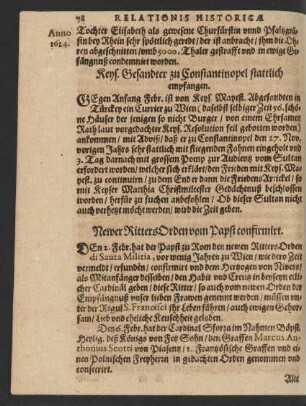 78 RELATIONIS HISTORICÆ
Anno
1624.
Tochter Elisabeth als gewesene Churfürstin unnd Pfaltzgräf-
fin bey Rhein sehr spöttlich geredt / der ist anbracht / ihm die Oh-
ren abgeschnitten / umb 5000. Thaler gestrafft vnd in ewige Ge-
fängnuß condemniert worden.
Keys. Gesandter zu Constantinopel stattlich
empfangen.
GEgen Anfang Febr. ist von Keys. Mayest. Abgesandten in
Türckey ein Currier zu Wien / daselbst selbiger Zeit 56. schö-
ne Häuser der jenigen so nicht Burger / von einem Ehrsamen
Rath laut vorgedachter Keys. Resolution feil gebotten worden /
ankommen / mit Advyß / daß er zu Constantinopel den 27. Nov.
vorigen Jahrs sehr stattlich mit fliegenden Fahnen eingeholt vnd
3. Tag darnach mit grossem Pomp zur Audientz vom Sultan
erfordert worden / welcher sich erklärt / den Frieden mit Key. Ma-
yest. zu continuirn / zu dem End er dann die Friedens Articlel / so
mit Keyser Matthia Christmiltester Gedächtnuß beschlossen
worden / herfür zu suchen anbefohlen / Ob dieser Sultan nicht
auch verhetzt möcht werden / wird die Zeit geben.
Newer Ritters Orden vom Papst confirmirt.
DEn 2. Febr. hat der Papst zu Rom den newen Ritters Orden
di Santa Militia, vor wenig Jahren zu Wien / wie dero Zeit
vermeldt / erfunden / confirmirt vnd dem Hertzogen von Nivers /
als Mitanfänger desselben / den Habit vnd Creutz in beysein etli-
cher Cardinäl geben / diese Ritter / so auch vom newen Orden der
Empfängnuß unser lieben Frawen genennt werden / müssen un-
ter der Regul S. Francisci ihr Leben führen / auch ewigen Gehor-
sam / Lieb vnd eheliche Keuschheit geloben.
Den 6. Febr. hat der Cardinal Sforza im Nahmen Bäpst.
Heylig. deß Königs von Fetz Sohn / den Graffen Marcus An-
thonius Scotti von Piasentz / 1. Frantzösische Graffen vnd ei-
nen Polnischen Freyherrn in gedachten Orden genommen vnd
confexirt.
Alle